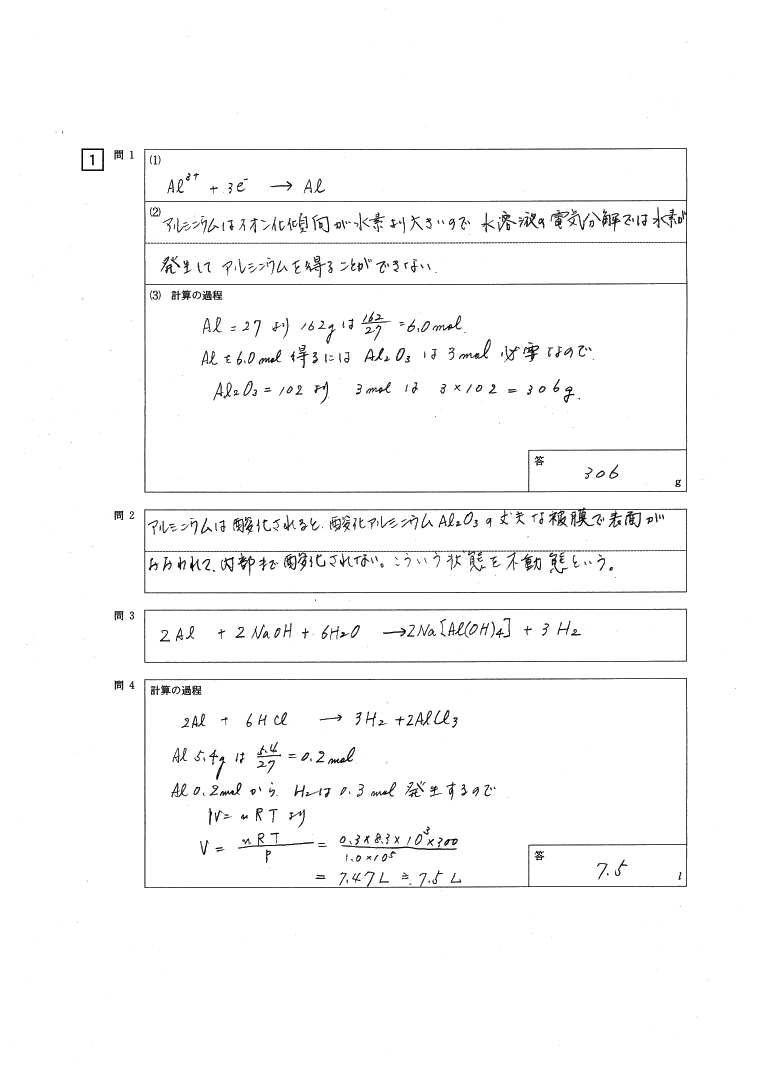 1
問 1
(1)
Al³⁺ + 3e⁻ → Al
(2)
アルミニウムはイオン化傾向が水素より大きいので 水溶液の電気分解では水素が
発生して アルミニウムを得ることができない.
(3) 計算の過程
Al = 27 より 162g は 162/27 = 6.0 mol.
Al を 6.0 mol 得るには Al₂O₃ は 3 mol 必要なので.
Al₂O₃ = 102 より 3 mol は 3 × 102 = 306 g.
答
306
g
問 2
アルミニウムは酸化されると、酸化アルミニウム Al₂O₃ の丈夫な被膜で表面が
おおわれて、内部まで酸化されない。こういう状態を不動態という。
問 3
2Al + 2NaOH + 6H₂O → 2Na[Al(OH)₄] + 3H₂
問 4
計算の過程
2Al + 6HCl → 3H₂ + 2AlCl₃
Al 5.4g は 5.4/27 = 0.2 mol
Al 0.2mol から. H₂ は 0.3 mol 発生するので
PV = nRT より
V = nRT/P = 0.3×8.3×10³×300/1.0×10⁵
= 7.47 L ≒ 7.5 L
答
7.5
l